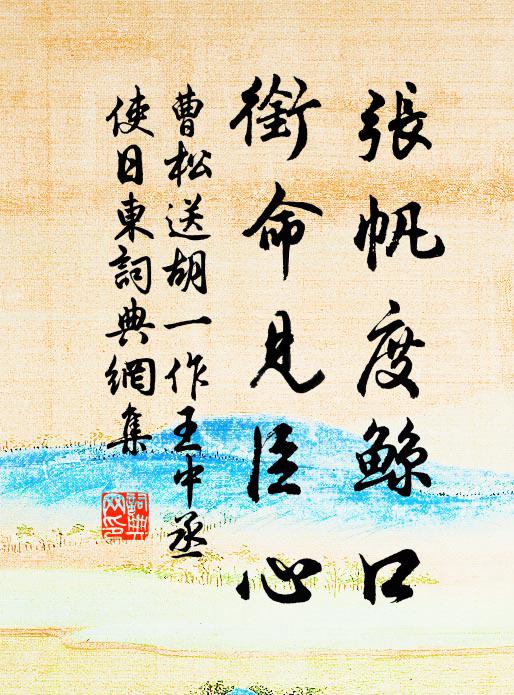 張帆度鯨口
銜命見臣心
曹松送胡一作王中丞
使日東詞典網集